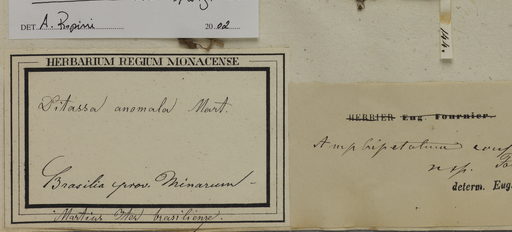 DET. A. Rapini 2002
144.
HERBARIUM REGIUM MONACENSE
Ditassa anomala Mart.
Brasilia prov. Minarum
Martius Iter brasiliense.
HERBIER Eug. Fournier.
Amphipetalum
nsp.
determ. Eug.